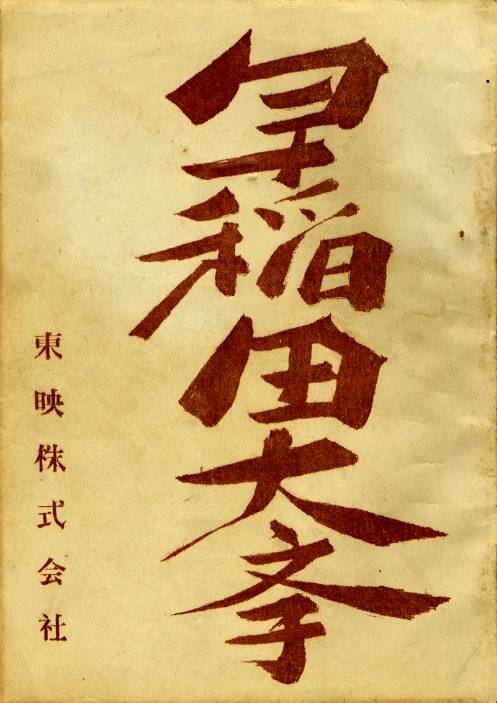 早稲田大斈
東映株式会社